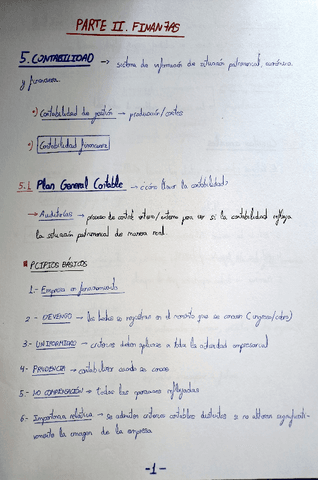 PARTE II. FINANZAS
5. CONTABILIDAD → sistema de información de situación patrimonial, económica
y financiera.
•) Contabilidad de gestión → producción/costes
•) Contabilidad financiera
5.1 Plan General Contable → ¿cómo llevar la contabilidad?
→ Auditorías → proceso de control interno/externo para ver si la contabilidad refleja
la situación patrimonial de manera real.
PCIPIOS BÁSICOS
1.- Empresa en funcionamiento
2.- DEVENGO → los hechos se registran en el momento que se conocen (ingreso/cobro)
3.- UNIFORMIDAD → criterios deben aplicarse a toda la actividad empresarial
4.- PRUDENCIA → contabilizar cuando se conoce
5.- NO COMPENSACIÓN → todas las reflejadas
6.- Importancia relativa → se admiten criterios contables distintos si no alteran significati-
vamente la imagen de la empresa
-1-